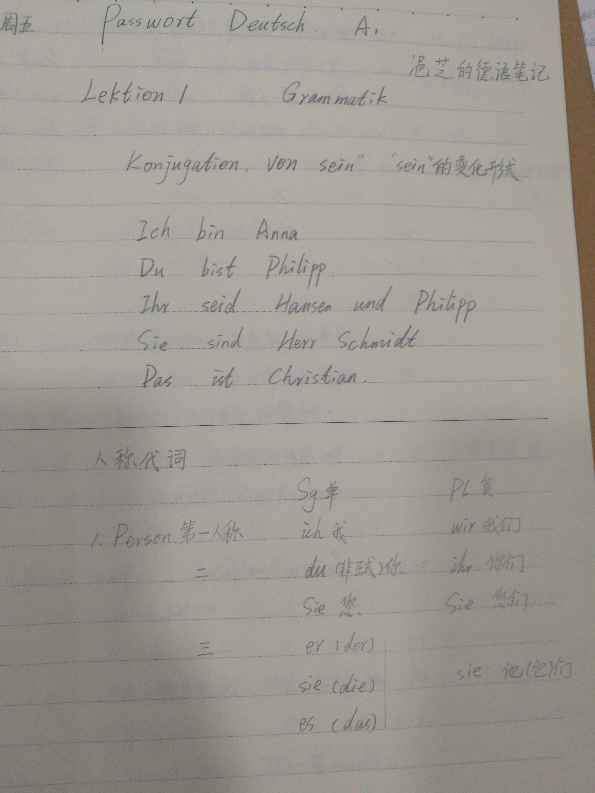 周五 Passwort Deutsch A1
的德语笔记
Lektion 1 Grammatik
Konjugation von "sein" "sein"的变化形式
Ich bin Anna
Du bist Philipp
Ihr seid Hansen und Philipp
Sie sind Herr Schmidt
Das ist Christian.
人称代词
Sg单 PL复
1. Person 第一人称 ich 我 wir 我们
二 du (非正式)你 ihr 你们
Sie 您 Sie 您们
三 er (der)
sie (die) sie 他(它)们
es (das)